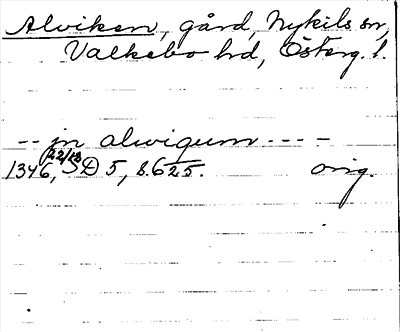 Alviken, gård, Nykils sn,
Valkebo hd, Österg. l.
-- jn alwigum ----
22/12
1346, SD 5, s. 625. orig.